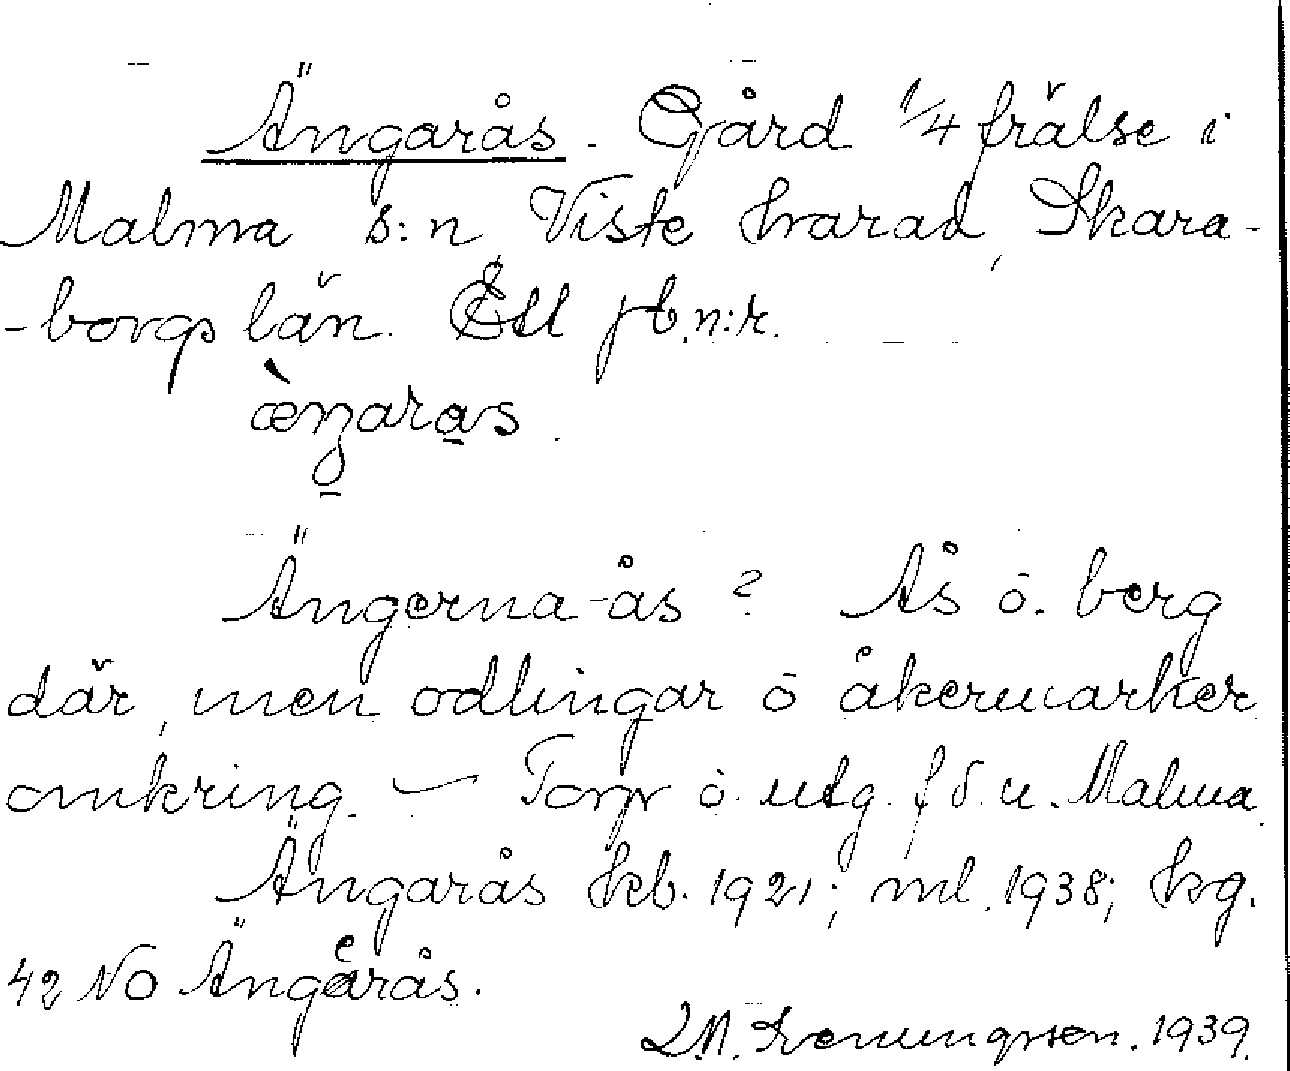 Ängarås. Gård 1/4 frälse i
Malma s:n Viste härad, Skara-
-borgs län. Ett jb.n:r.
æ̀ŋaras.
Ängerna-ås? Ås o. berg
där, men odlingar o åkermarker
omkring. — Torp o. utg. f d. u. Malma.
Ängarås kb. 1921; ml. 1938; kg.
42 NO Ängårås.
1939.